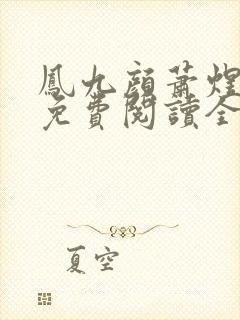 鳳九顔蕭煌
免費閱讀全
夏空